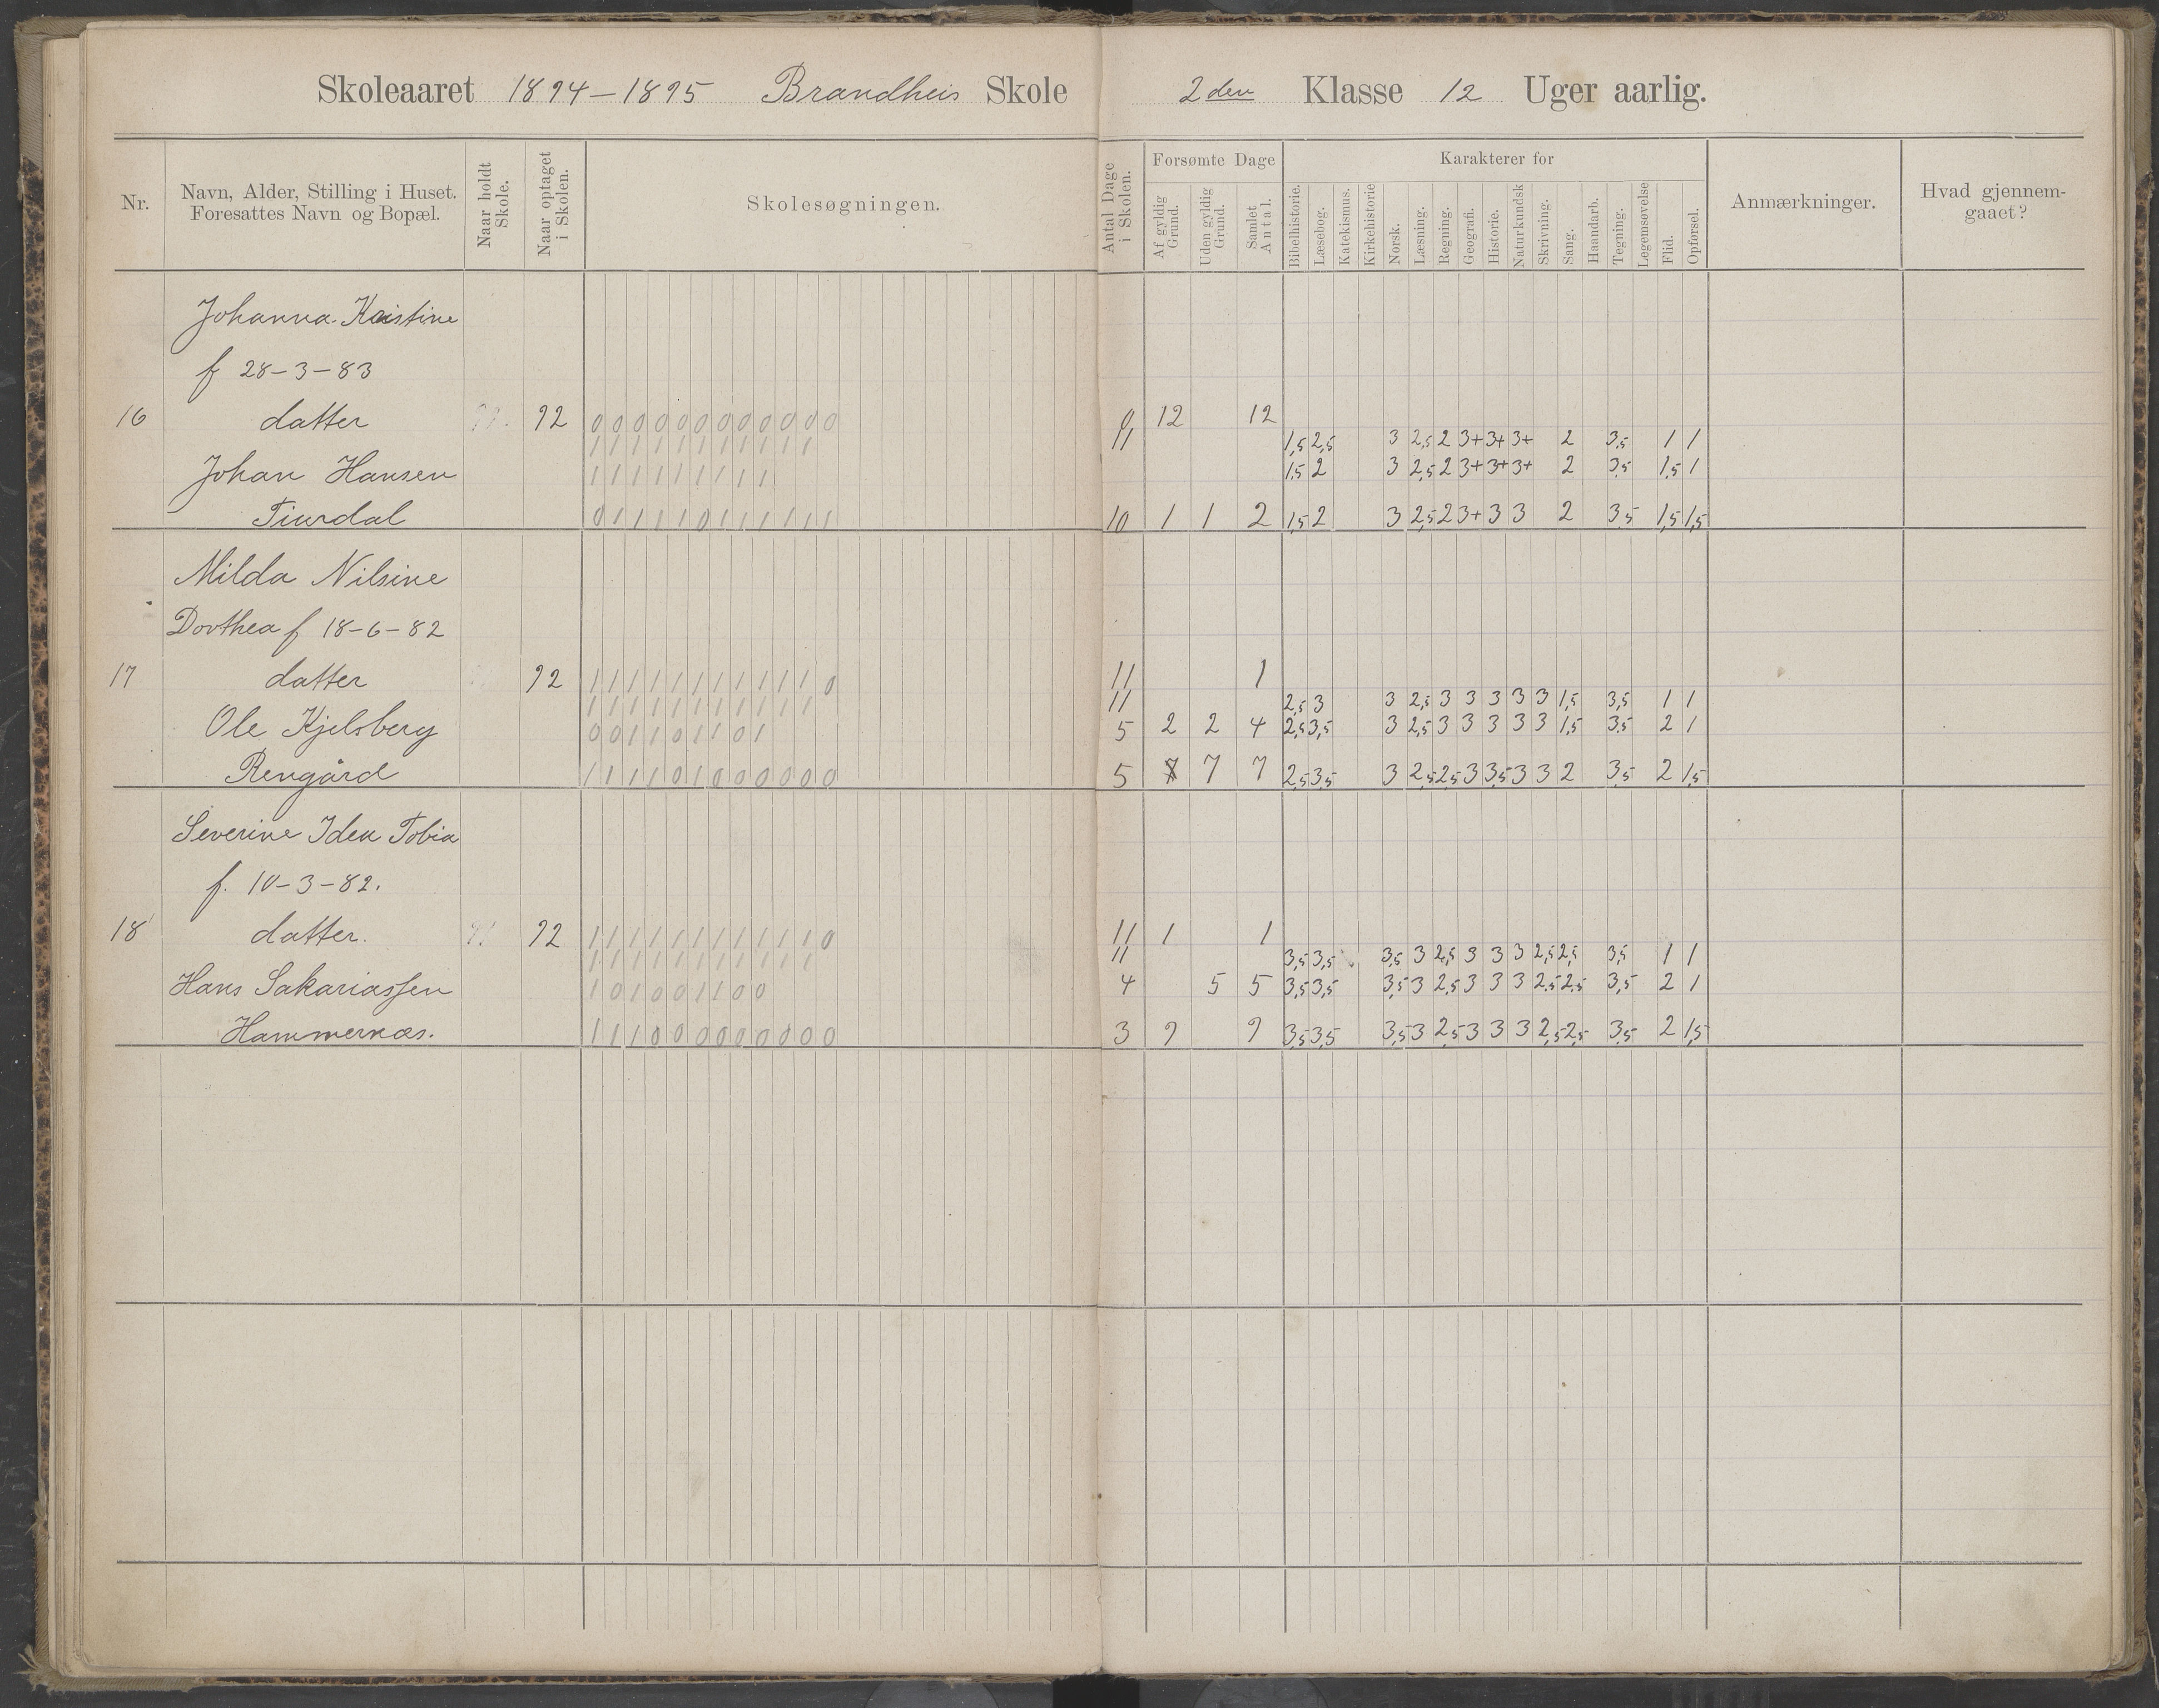 Skoleaaret 1894-1895 Brandheis Skole 2den Klasse 12 Uger aarlig.
Nr.
Navn, Alder, Stilling i Huset.
Foresattes Navn og Bopæl.
Naar holdt
Skole.
Naar optaget
i Skolen.
Skolesøgningen.
Antal Dage
i Skolen.
Forsømte Dage
Af gyldig
Grund.
Uden gyldig
Grund.
Samlet
Antal.
Karakterer for
Bibelhistorie.
Læsebog.
Katekismus.
Kirkehistorie
Norsk.
Læsning.
Regning.
Geografi.
Historie.
Naturkundsk
Skrivning.
Sang.
Haandarb.
Tegning.
Legemsøvelse
Flid.
Opførsel.
Anmærkninger.
Hvad gjennem-
gaaet?
Johanna Kristine
f 28-3-83
16 datter 92 0 0 0 0 0 0 0 0 0 0 0 0 0 12 12
1 1 1 1 1 1 1 1 1 1 1 11 1,5 2,5 3 2,5 2 3+ 3+ 3+ 2 3,5 1 1
Johan Hansen 1 1 1 1 1 1 1 1 1 1,5 2 3 2,5 2 3+ 3+ 3+ 2 3,5 1,5 1
Tiurdal 0 1 1 1 1 0 1 1 1 1 1 1 10 1 1 2 1,5 2 3 2,5 2 3+ 3 3 2 3,5 1,5 1,5
Milda Nilsine
Dorthea f 18-6-82
17 datter 92 1 1 1 1 1 1 1 1 1 1 1 0 11 1
1 1 1 1 1 1 1 1 1 1 1 11 2,5 3 3 2,5 3 3 3 3 3 1,5 3,5 1 1
Ole Kjelsberg 0 0 1 1 0 1 1 0 1 5 2 2 4 2,5 3,5 3 2,5 3 3 3 3 3 1,5 3,5 2 1
Rengård 1 1 1 1 0 1 0 0 0 0 0 0 5 7 7 2,5 3,5 3 2,5 2,5 3 3,5 3 3 2 3,5 2 1,5
Severine Idea Tobia
f. 10-3-82.
18 datter. 92 1 1 1 1 1 1 1 1 1 1 1 0 11 1 1
1 1 1 1 1 1 1 1 1 1 1 11 3,5 3,5 3,5 3 2,5 3 3 3 2,5 2,5 3,5 1 1
Hans Sakariassen 1 0 1 0 0 1 1 0 0 4 5 5 3,5 3,5 3,5 3 2,5 3 3 3 2,5 2,5 3,5 2 1
Hammernæs. 1 1 1 0 0 0 0 0 0 0 0 0 3 9 9 3,5 3,5 3,5 3 2,5 3 3 3 2,5 2,5 3,5 2 1,5